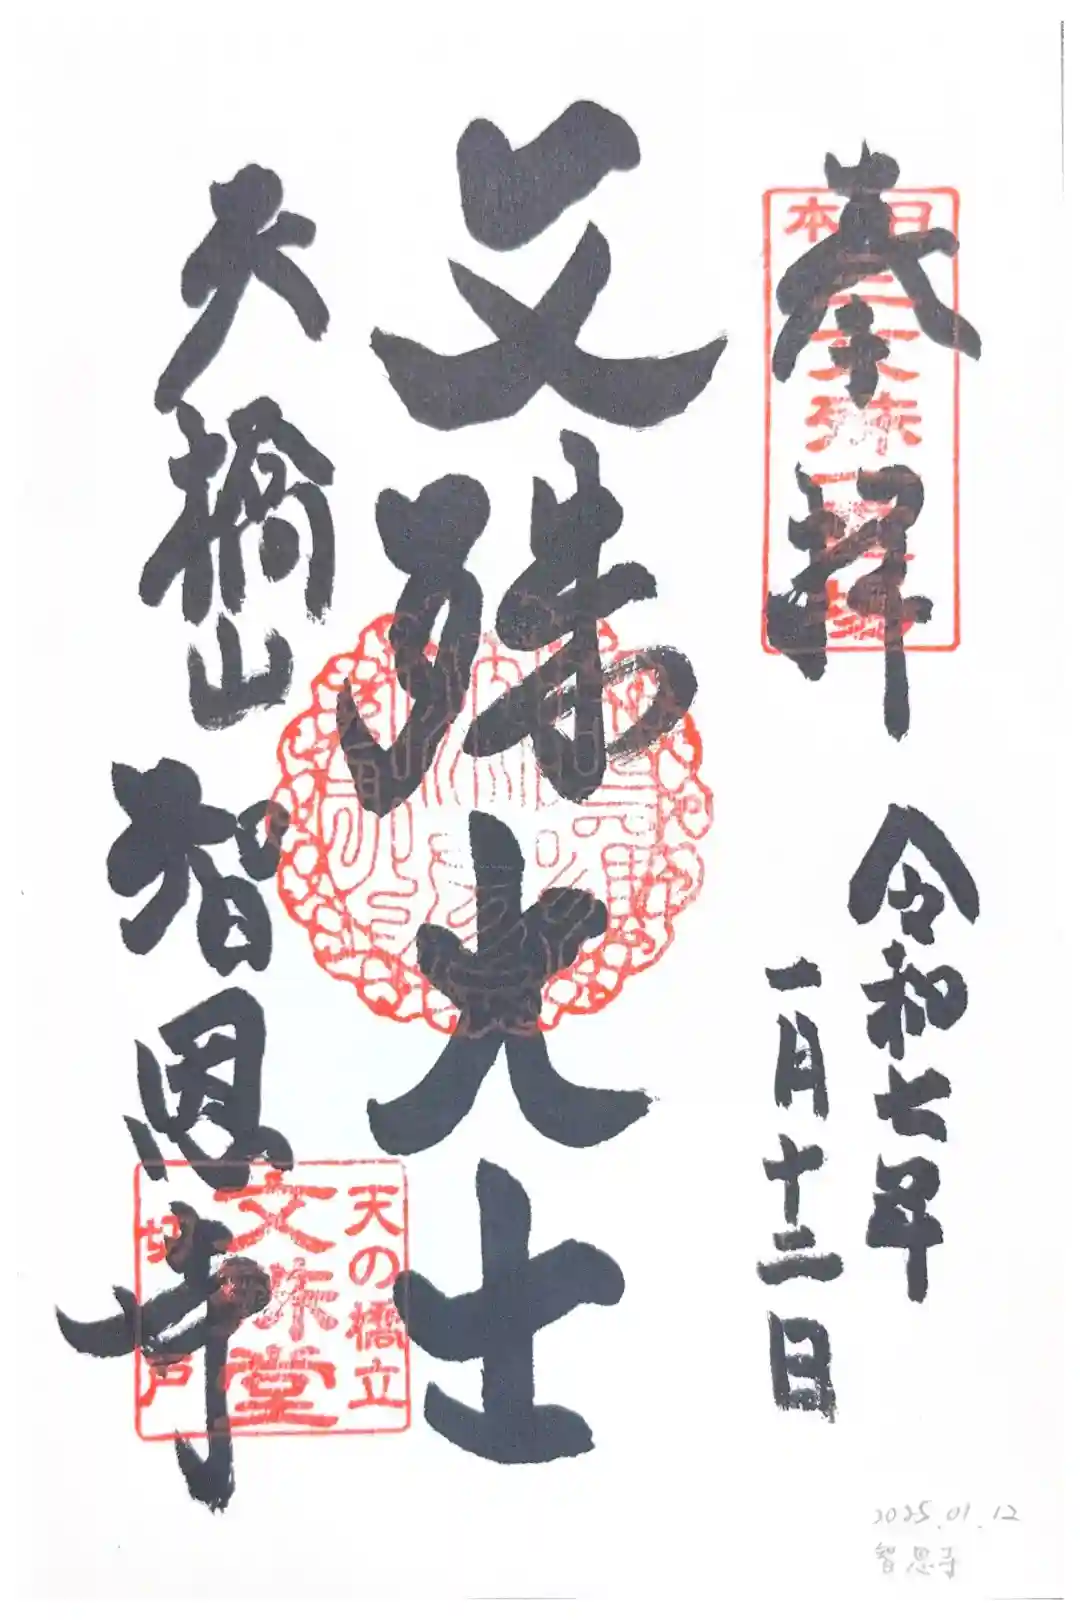 奉拝
日本三文殊霊場
令和七年
一月十二日
文殊大士
天橋山
智恩寺
天の橋立
文殊堂
切戸
2025.01.12
智恩寺